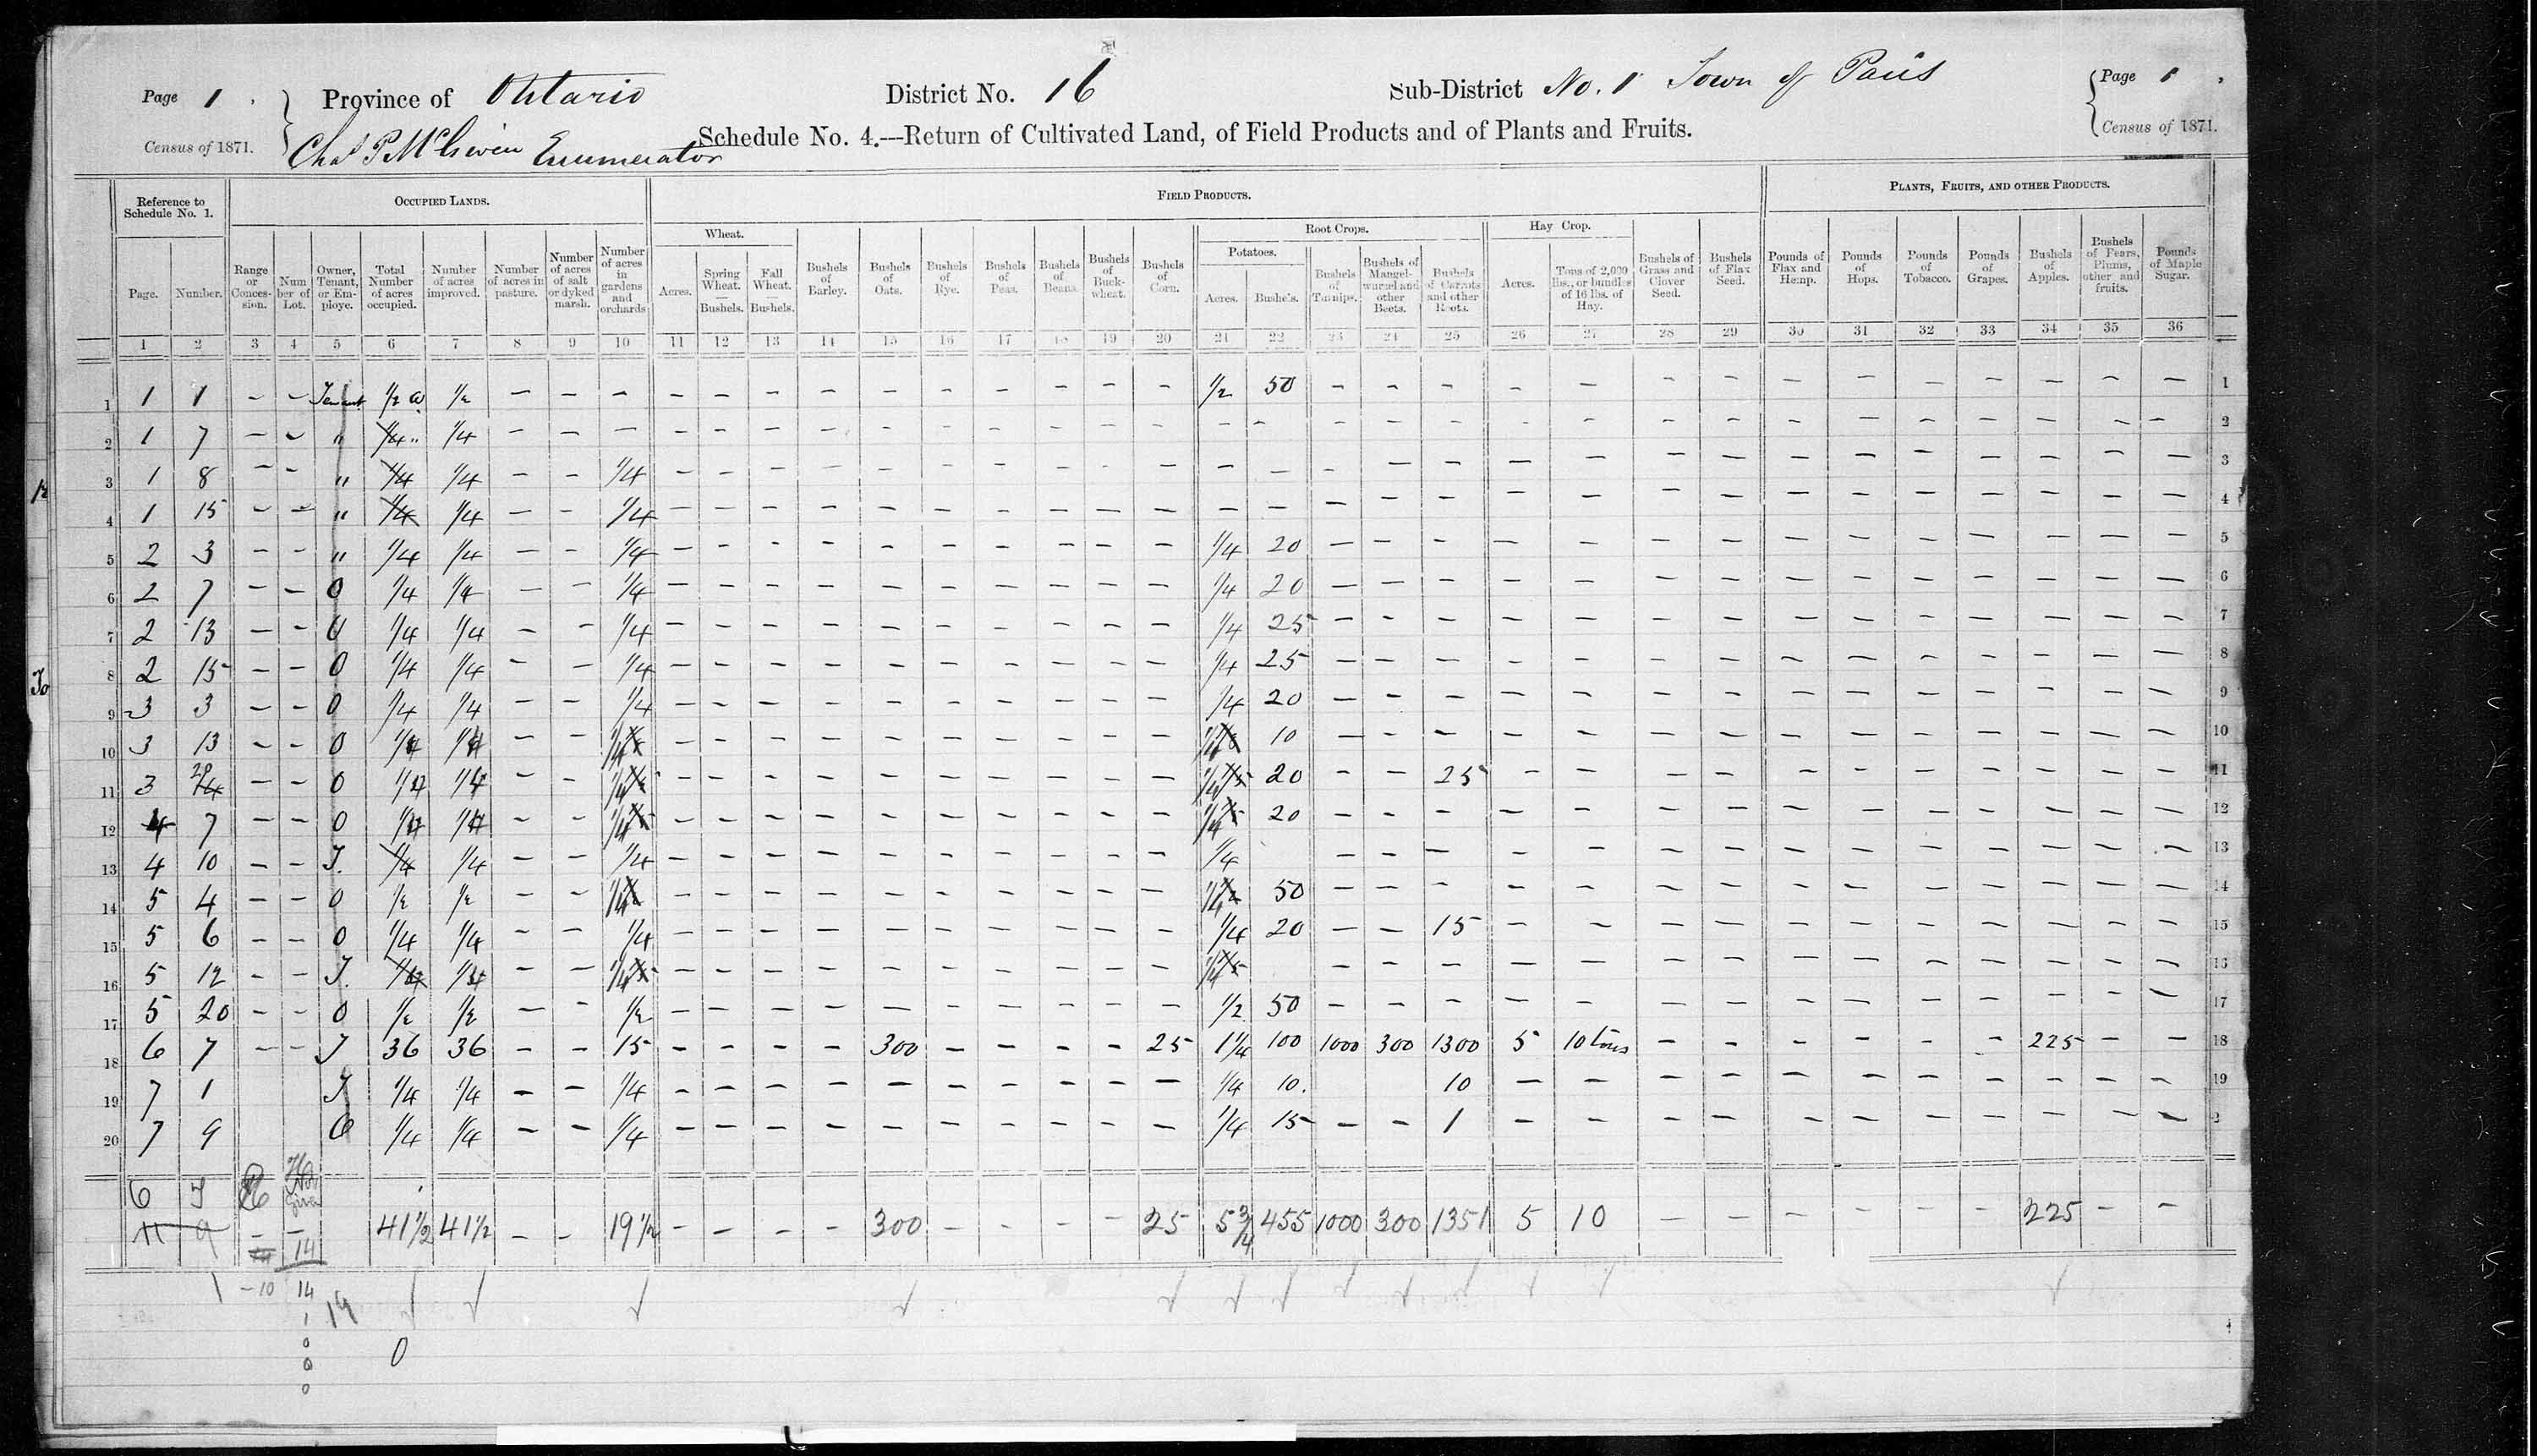 Page 1. Province of Ontario District No. 16 Sub-District No. 1 Town of Paris Page 1
Census of 1871. Chas P. McGiven Enumerator Schedule No. 4.---Return of Cultivated Land, of Field Products and of Plants and Fruits. Census of 1871.
Reference to Schedule No. 1. OCCUPIED LANDS. FIELD PRODUCTS. PLANTS, FRUITS, AND OTHER PRODUCTS.
Wheat. Root Crops. Hay Crop.
Potatoes.
Page. Number. Range or Conces- sion. Num ber of Lot. Owner, Tenant, or Em- ploye. Total Number of acres occupied. Number of acres improved. Number of acres in pasture. Number of acres of salt or dyked marsh. Number of acres in gardens and orchards Acres. Spring Wheat. — Bushels. Fall Wheat. — Bushels. Bushels of Barley. Bushels of Oats. Bushels of Rye. Bushels of Peas. Bushels of Beans. Bushels of Buck- wheat. Bushels of Corn. Acres. Bushels. Bushels of Turnips. Bushels of Mangel- wurzel and other Beets. Bushels of Carrots and other Roots. Acres. Tons of 2,000 lbs., or bundles of 16 lbs. of Hay. Bushels of Grass and Clover Seed. Bushels of Flax Seed. Pounds of Flax and Hemp. Pounds of Hops. Pounds of Tobacco. Pounds of Grapes. Bushels of Apples. Bushels of Pears, Plums, other and fruits. Pounds of Maple Sugar.
1 2 3 4 5 6 7 8 9 10 11 12 13 14 15 16 17 18 19 20 21 22 23 24 25 26 27 28 29 30 31 32 33 34 35 36
1 1 1 - - Tenant 1/2 a 1/2 - - - - - - - - - - - - - 1/2 50 - - - - - - - - - - - - - - 1
2 1 7 - - " 1/4 " 1/4 - - - - - - - - - - - - - - - - - - - - - - - - - - - - - 2
3 1 8 - - " 1/4 1/4 - - 1/4 - - - - - - - - - - - - - - - - - - - - - - - - - - 3
4 1 15 - - " 1/4 1/4 - - 1/4 - - - - - - - - - - - - - - - - - - - - - - - - - - 4
5 2 3 - - " 1/4 1/4 - - 1/4 - - - - - - - - - - 1/4 20 - - - - - - - - - - - - - - 5
6 2 7 - - O 1/4 1/4 - - 1/4 - - - - - - - - - - 1/4 20 - - - - - - - - - - - - - - 6
7 2 13 - - O 1/4 1/4 - - 1/4 - - - - - - - - - - 1/4 25 - - - - - - - - - - - - - - 7
8 2 15 - - O 1/4 1/4 - - 1/4 - - - - - - - - - - 1/4 25 - - - - - - - - - - - - - - 8
9 3 3 - - O 1/4 1/4 - - 1/4 - - - - - - - - - - 1/4 20 - - - - - - - - - - - - - - 9
10 3 13 - - O 1/4 1/4 - - 1/4 - - - - - - - - - - 1/4 10 - - - - - - - - - - - - - - 10
11 3 20 - - O 1/4 1/4 - - 1/4 - - - - - - - - - - 1/4 20 - - 25 - - - - - - - - - - - 11
12 4 7 - - O 1/4 1/4 - - 1/4 - - - - - - - - - - 1/4 20 - - - - - - - - - - - - - - 12
13 4 10 - - T. 1/4 1/4 - - 1/4 - - - - - - - - - - 1/4 - - - - - - - - - - - - - - 13
14 5 4 - - O 1/2 1/2 - - 1/4 - - - - - - - - - - 1/4 50 - - - - - - - - - - - - - - 14
15 5 6 - - O 1/4 1/4 - - 1/4 - - - - - - - - - - 1/4 20 - - 15 - - - - - - - - - - - 15
16 5 12 - - T. 1/4 1/4 - - 1/4 - - - - - - - - - - 1/4 - - - - - - - - - - - - - - 16
17 5 20 - - O 1/2 1/2 - - 1/2 - - - - - - - - - - 1/2 50 - - - - - - - - - - - - - - 17
18 6 7 - - T 36 36 - - 15 - - - - 300 - - - - 25 1 1/4 100 1000 300 1300 5 10 tons - - - - - - 225 - - 18
19 7 1 T 1/4 1/4 - - 1/4 - - - - - - - - - - 1/4 10. 10 - - - - - - - - - - - 19
20 7 9 O 1/4 1/4 - - 1/4 - - - - - - - - - - 1/4 15 - - 1 - - - - - - - - - - - 2
6 T
11 9 - - 41 1/2 41 1/2 - - 19 1/2 - - - - 300 - - - - 25 5 3/4 455 1000 300 1351 5 10 - - - - - - 225 - -
14
-10 14
1 19
0 0
0
0